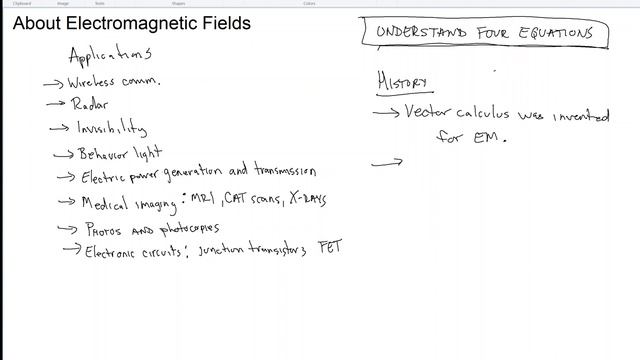 Clipboard Image Tools Shapes Colors
About Electromagnetic Fields
Applications
→ Wireless comm.
→ Radar
→ Invisibility
→ Behavior light
→ Electric power generation and transmission
→ Medical imaging: MRI, CAT scans, X-RAYS
→ PHOTOS AND photocopies
→ Electronic circuits: junction transistors FET
UNDERSTAND FOUR EQUATIONS
HISTORY
→ Vector calculus was invented
for EM.
→